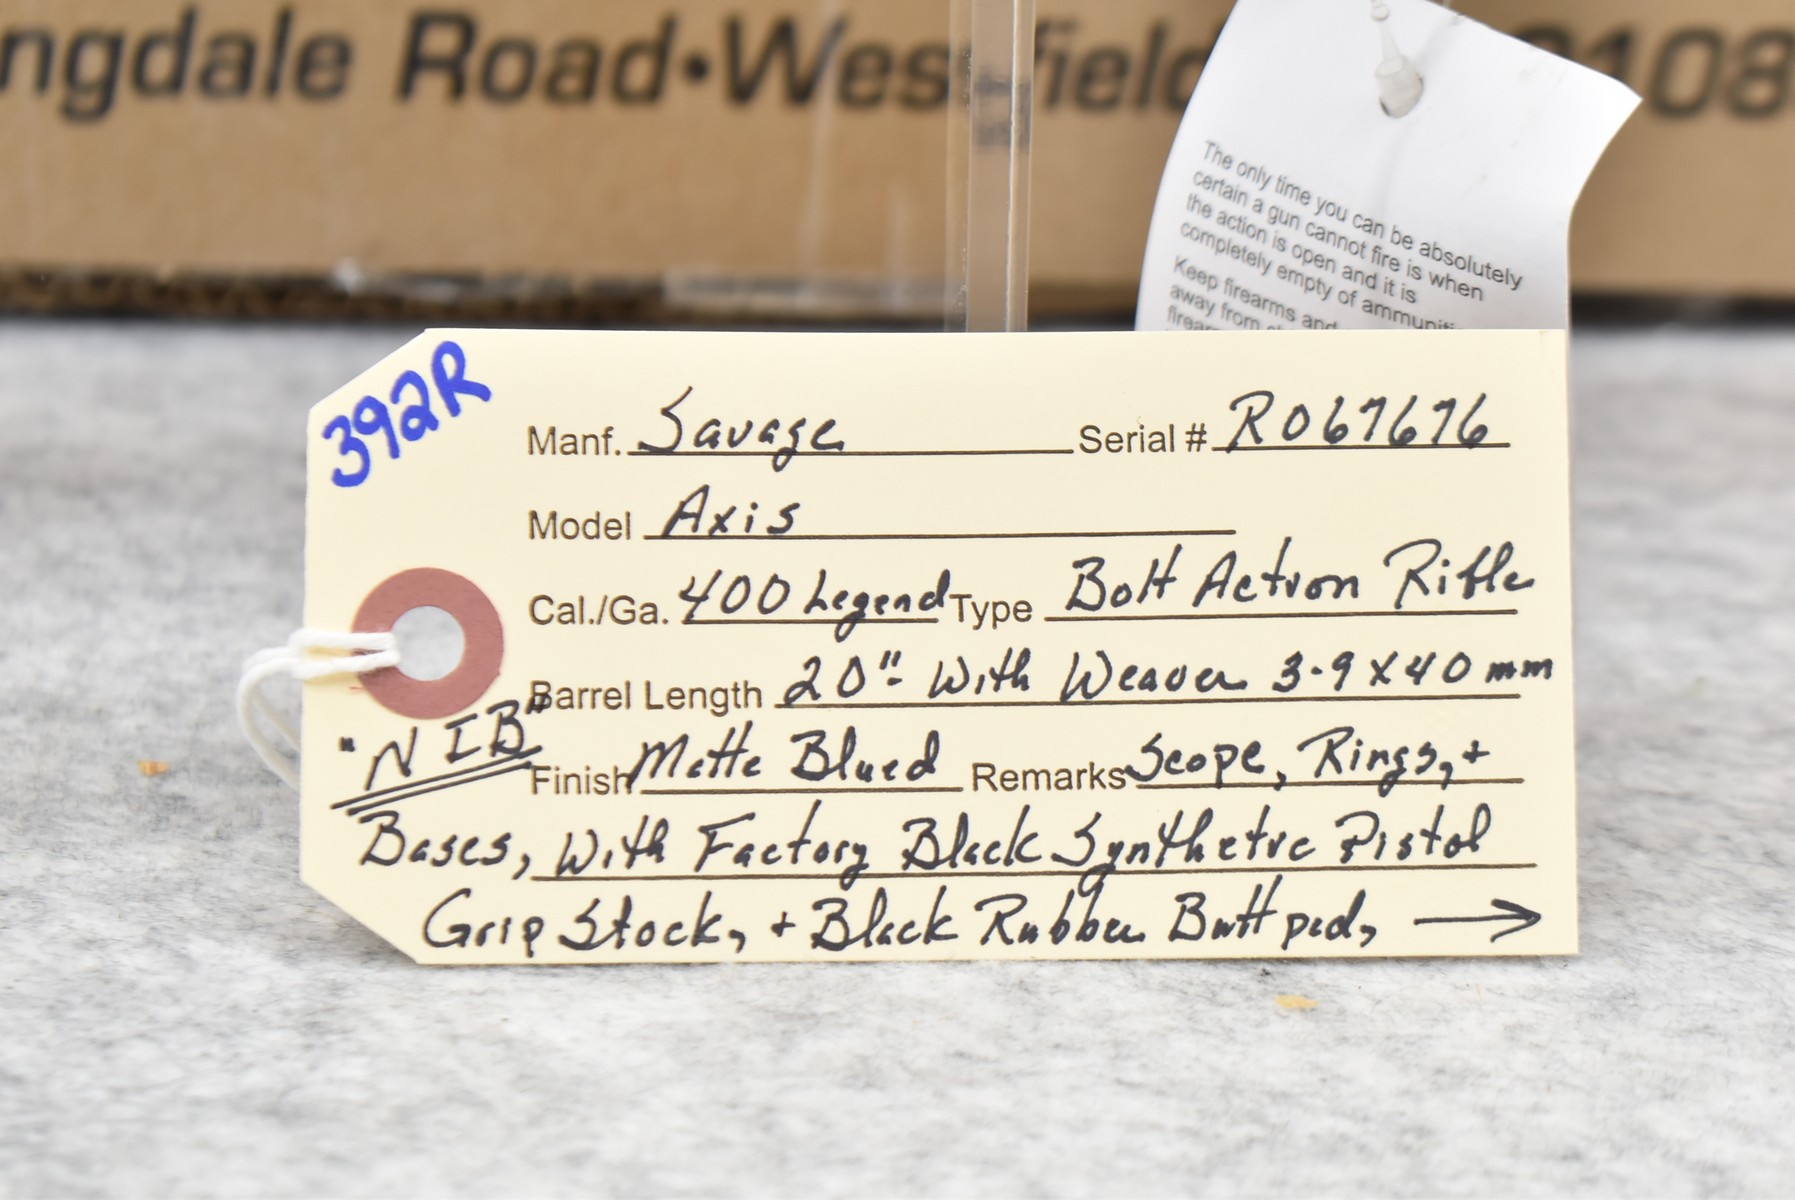 ngdale Road•Westfield
108
The only time you can be absolutely
certain a gun cannot fire is when
the action is open and it is
completely empty of ammuniti
Keep firearms and
away from
firear
392R
Manf. Savage Serial # R067676
Model Axis
Cal./Ga. 400 Legend Type Bolt Action Rifle
Barrel Length 20" With Weaver 3-9x40mm
"NIB"
Finish Matte Blued Remarks Scope, Rings, +
Bases, With Factory Black Synthetic Pistol
Grip Stock, + Black Rubber Buttpad, →